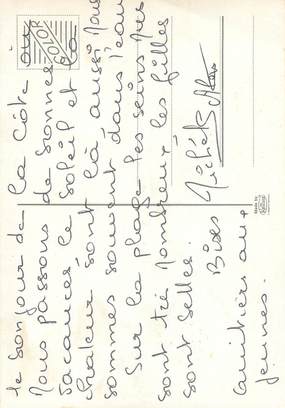 le bonjour de la Côte où
Nous passons de bonnes
vacances le soleil et la
chaleur sont là aussi Nous
sommes souvent dans l'eau
Sur la plage les seins Nus
sont très Nombreux les filles
sont belles.
Bises
aux
jeunes.
Michel
COLOR
Made by